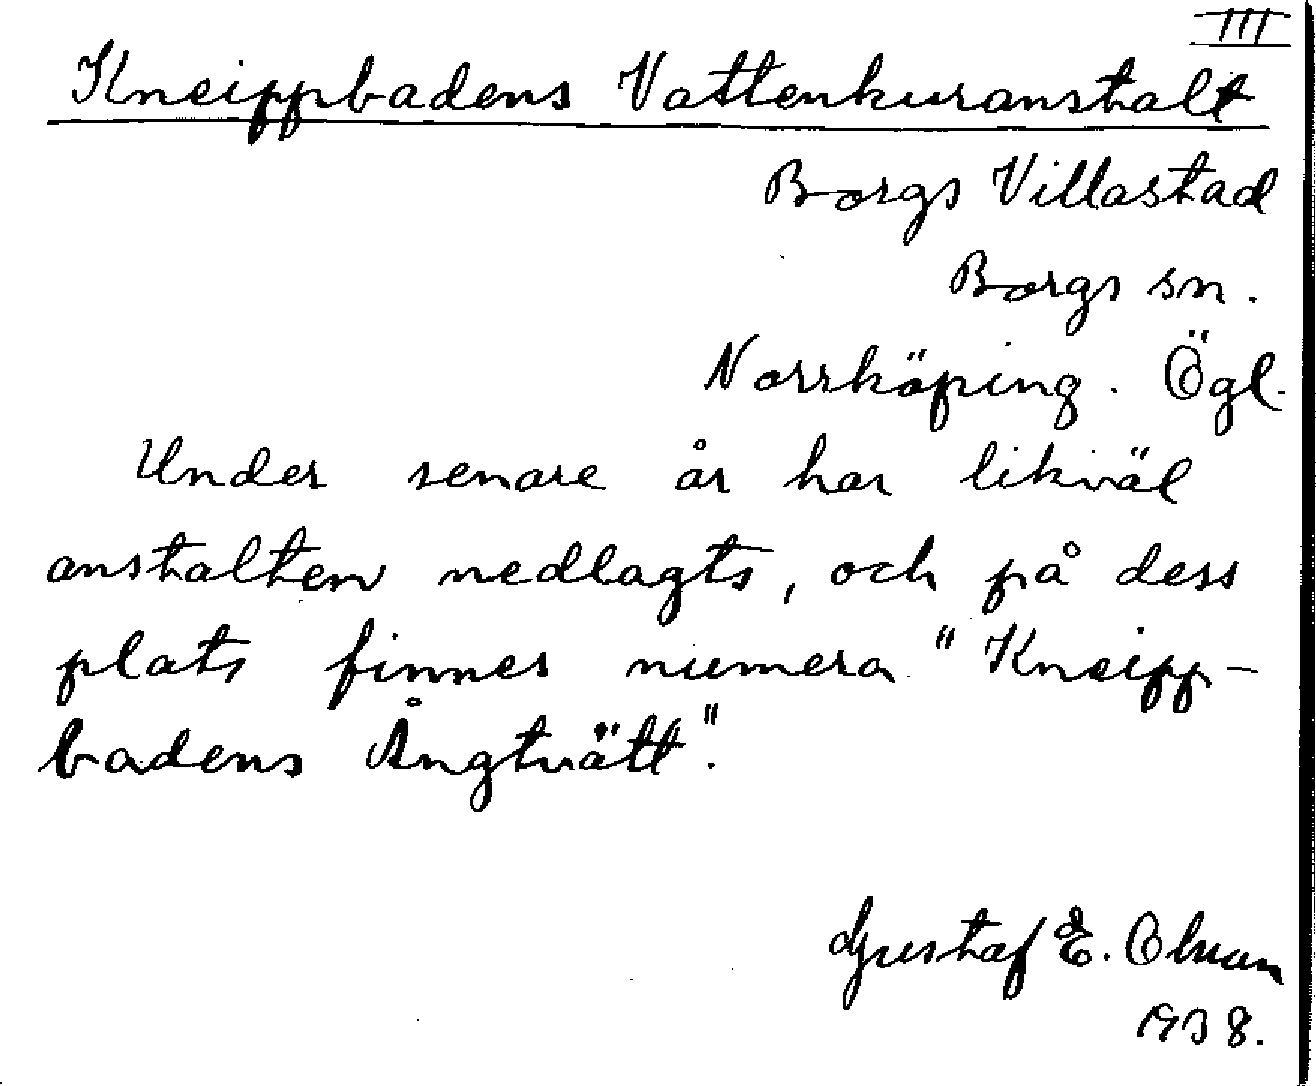 III
Kneippbadens Vattenkuranstalt
Borgs Villastad
Borgs sn.
Norrköping. Ögl.
Under senare år har likväl
anstalten nedlagts, och på dess
plats finnes numera "Kneipp-
badens Ångtvätt".
Gustaf E.
1938.